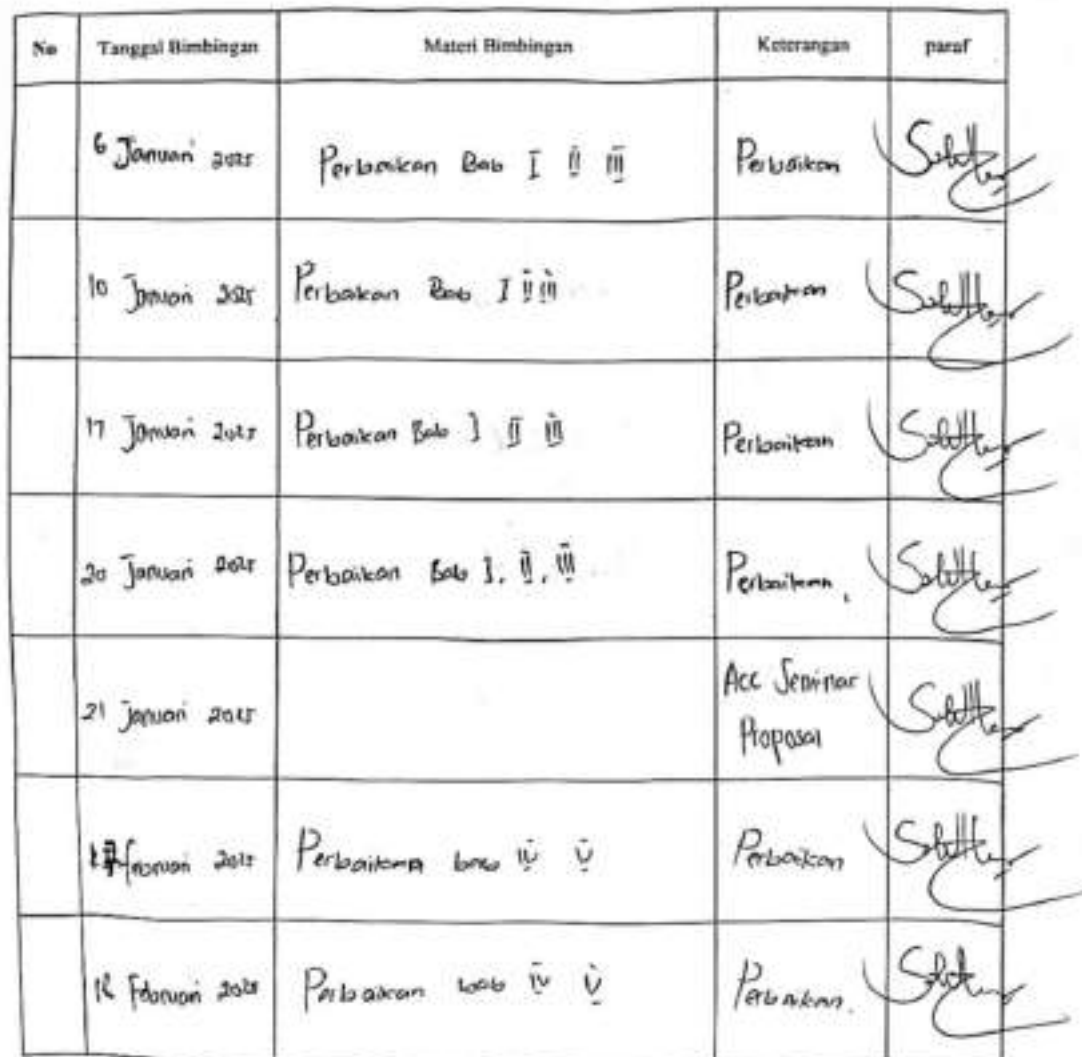 No Tanggal Bimbingan Materi Bimbingan Keterangan paraf
6 Januari 2025 Perbaikan Bab I II III Perbaikan
10 Januari 2025 Perbaikan Bab I II III Perbaikan
17 Januari 2025 Perbaikan Bab I II III Perbaikan
20 Januari 2025 Perbaikan Bab I, II, III Perbaikan,
21 Januari 2025 Acc Seminar
Proposal
Februari 2025 Perbaikan bab IV V Perbaikan
Februari 2025 Perbaikan bab IV V Perbaikan.